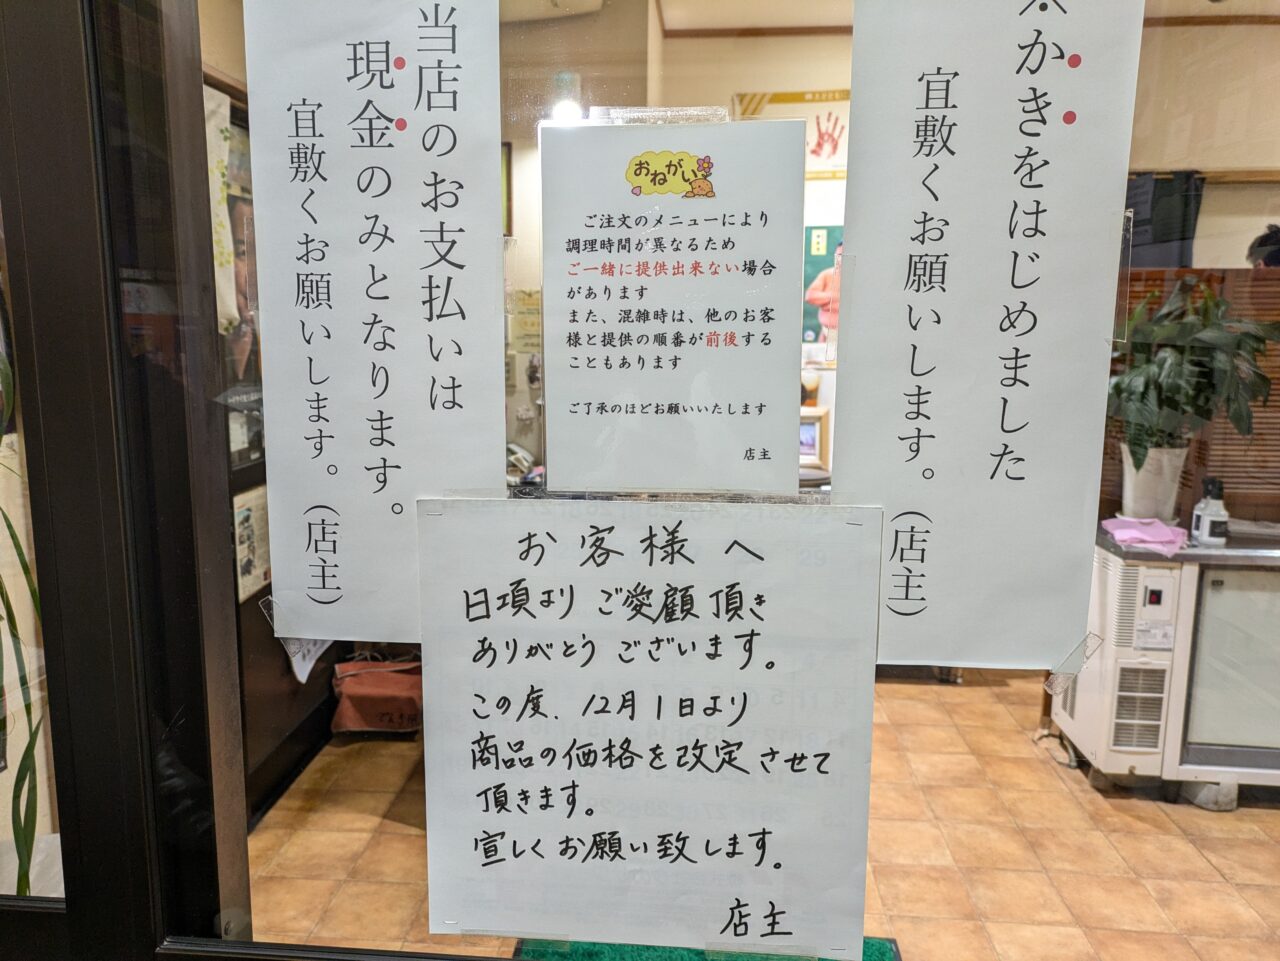 ※かきをはじめました
宜敷くお願いします。(店主)
おねがい
ご注文のメニューにより
調理時間が異なるため
ご一緒に提供出来ない場合
があります
また、混雑時は、他のお客
様と提供の順番が前後する
こともあります
ご了承のほどお願いいたします
店主
当店のお支払いは
現金のみとなります。
宜敷くお願いします。(店主)
お客様へ
日項より ご愛顧頂き
ありがとう ございます。
この度、12月1日より
商品の価格を改定させて
頂きます。
宣しくお願い致します。
店主